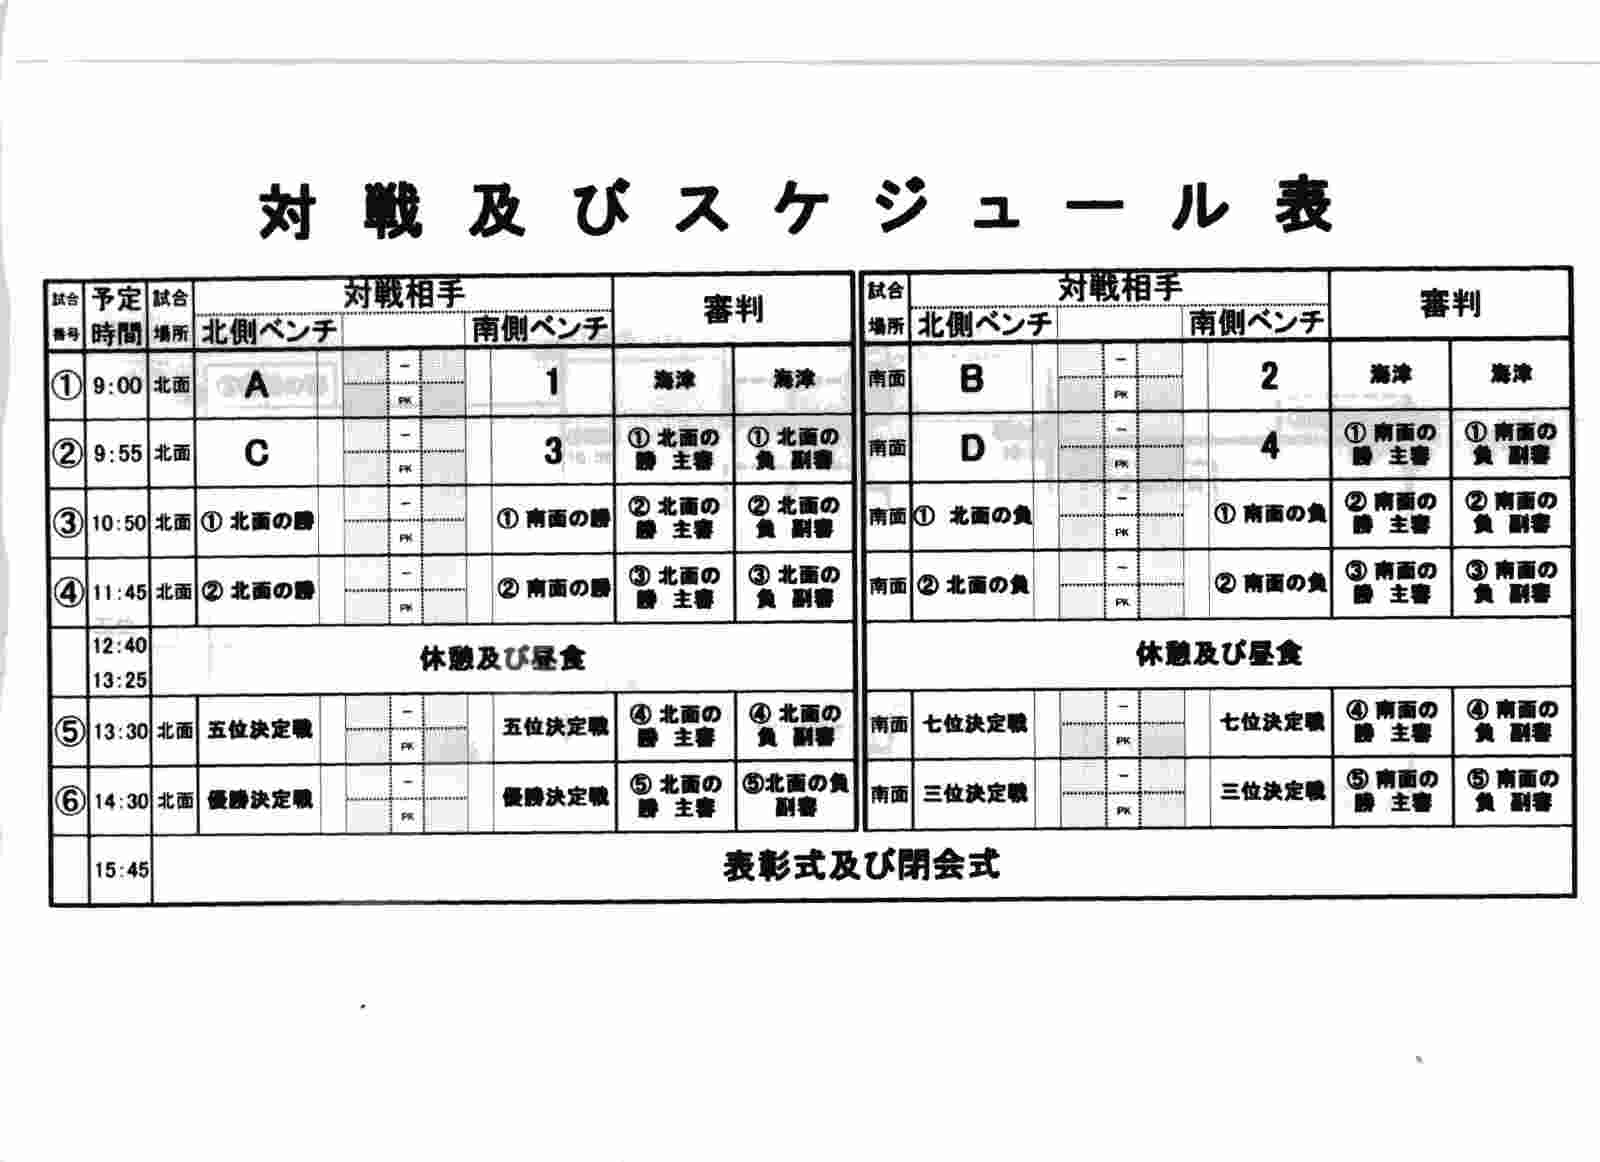 対戦及びスケジュール表
試合番号 予定時間 試合場所 対戦相手 審判 試合場所 対戦相手 審判
北側ベンチ 南側ベンチ 北側ベンチ 南側ベンチ
① 9:00 北面 A - PK 1 海津 海津 南面 B - PK 2 海津 海津
② 9:55 北面 C - PK 3 ①北面の勝 主審 ①北面の負 副審 南面 D - PK 4 ①南面の勝 主審 ①南面の負 副審
③ 10:50 北面 ①北面の勝 - PK ①南面の勝 ②北面の勝 主審 ②北面の負 副審 南面 ①北面の負 - PK ①南面の負 ②南面の勝 主審 ②南面の負 副審
④ 11:45 北面 ②北面の勝 - PK ②南面の勝 ③北面の勝 主審 ③北面の負 副審 南面 ②北面の負 - PK ②南面の負 ③南面の勝 主審 ③南面の負 副審
12:40 13:25 休憩及び昼食 休憩及び昼食
⑤ 13:30 北面 五位決定戦 - PK 五位決定戦 ④北面の勝 主審 ④北面の負 副審 南面 七位決定戦 - PK 七位決定戦 ④南面の勝 主審 ④南面の負 副審
⑥ 14:30 北面 優勝決定戦 - PK 優勝決定戦 ⑤北面の勝 主審 ⑤北面の負 副審 南面 三位決定戦 - PK 三位決定戦 ⑤南面の勝 主審 ⑤南面の負 副審
15:45 表彰式及び閉会式